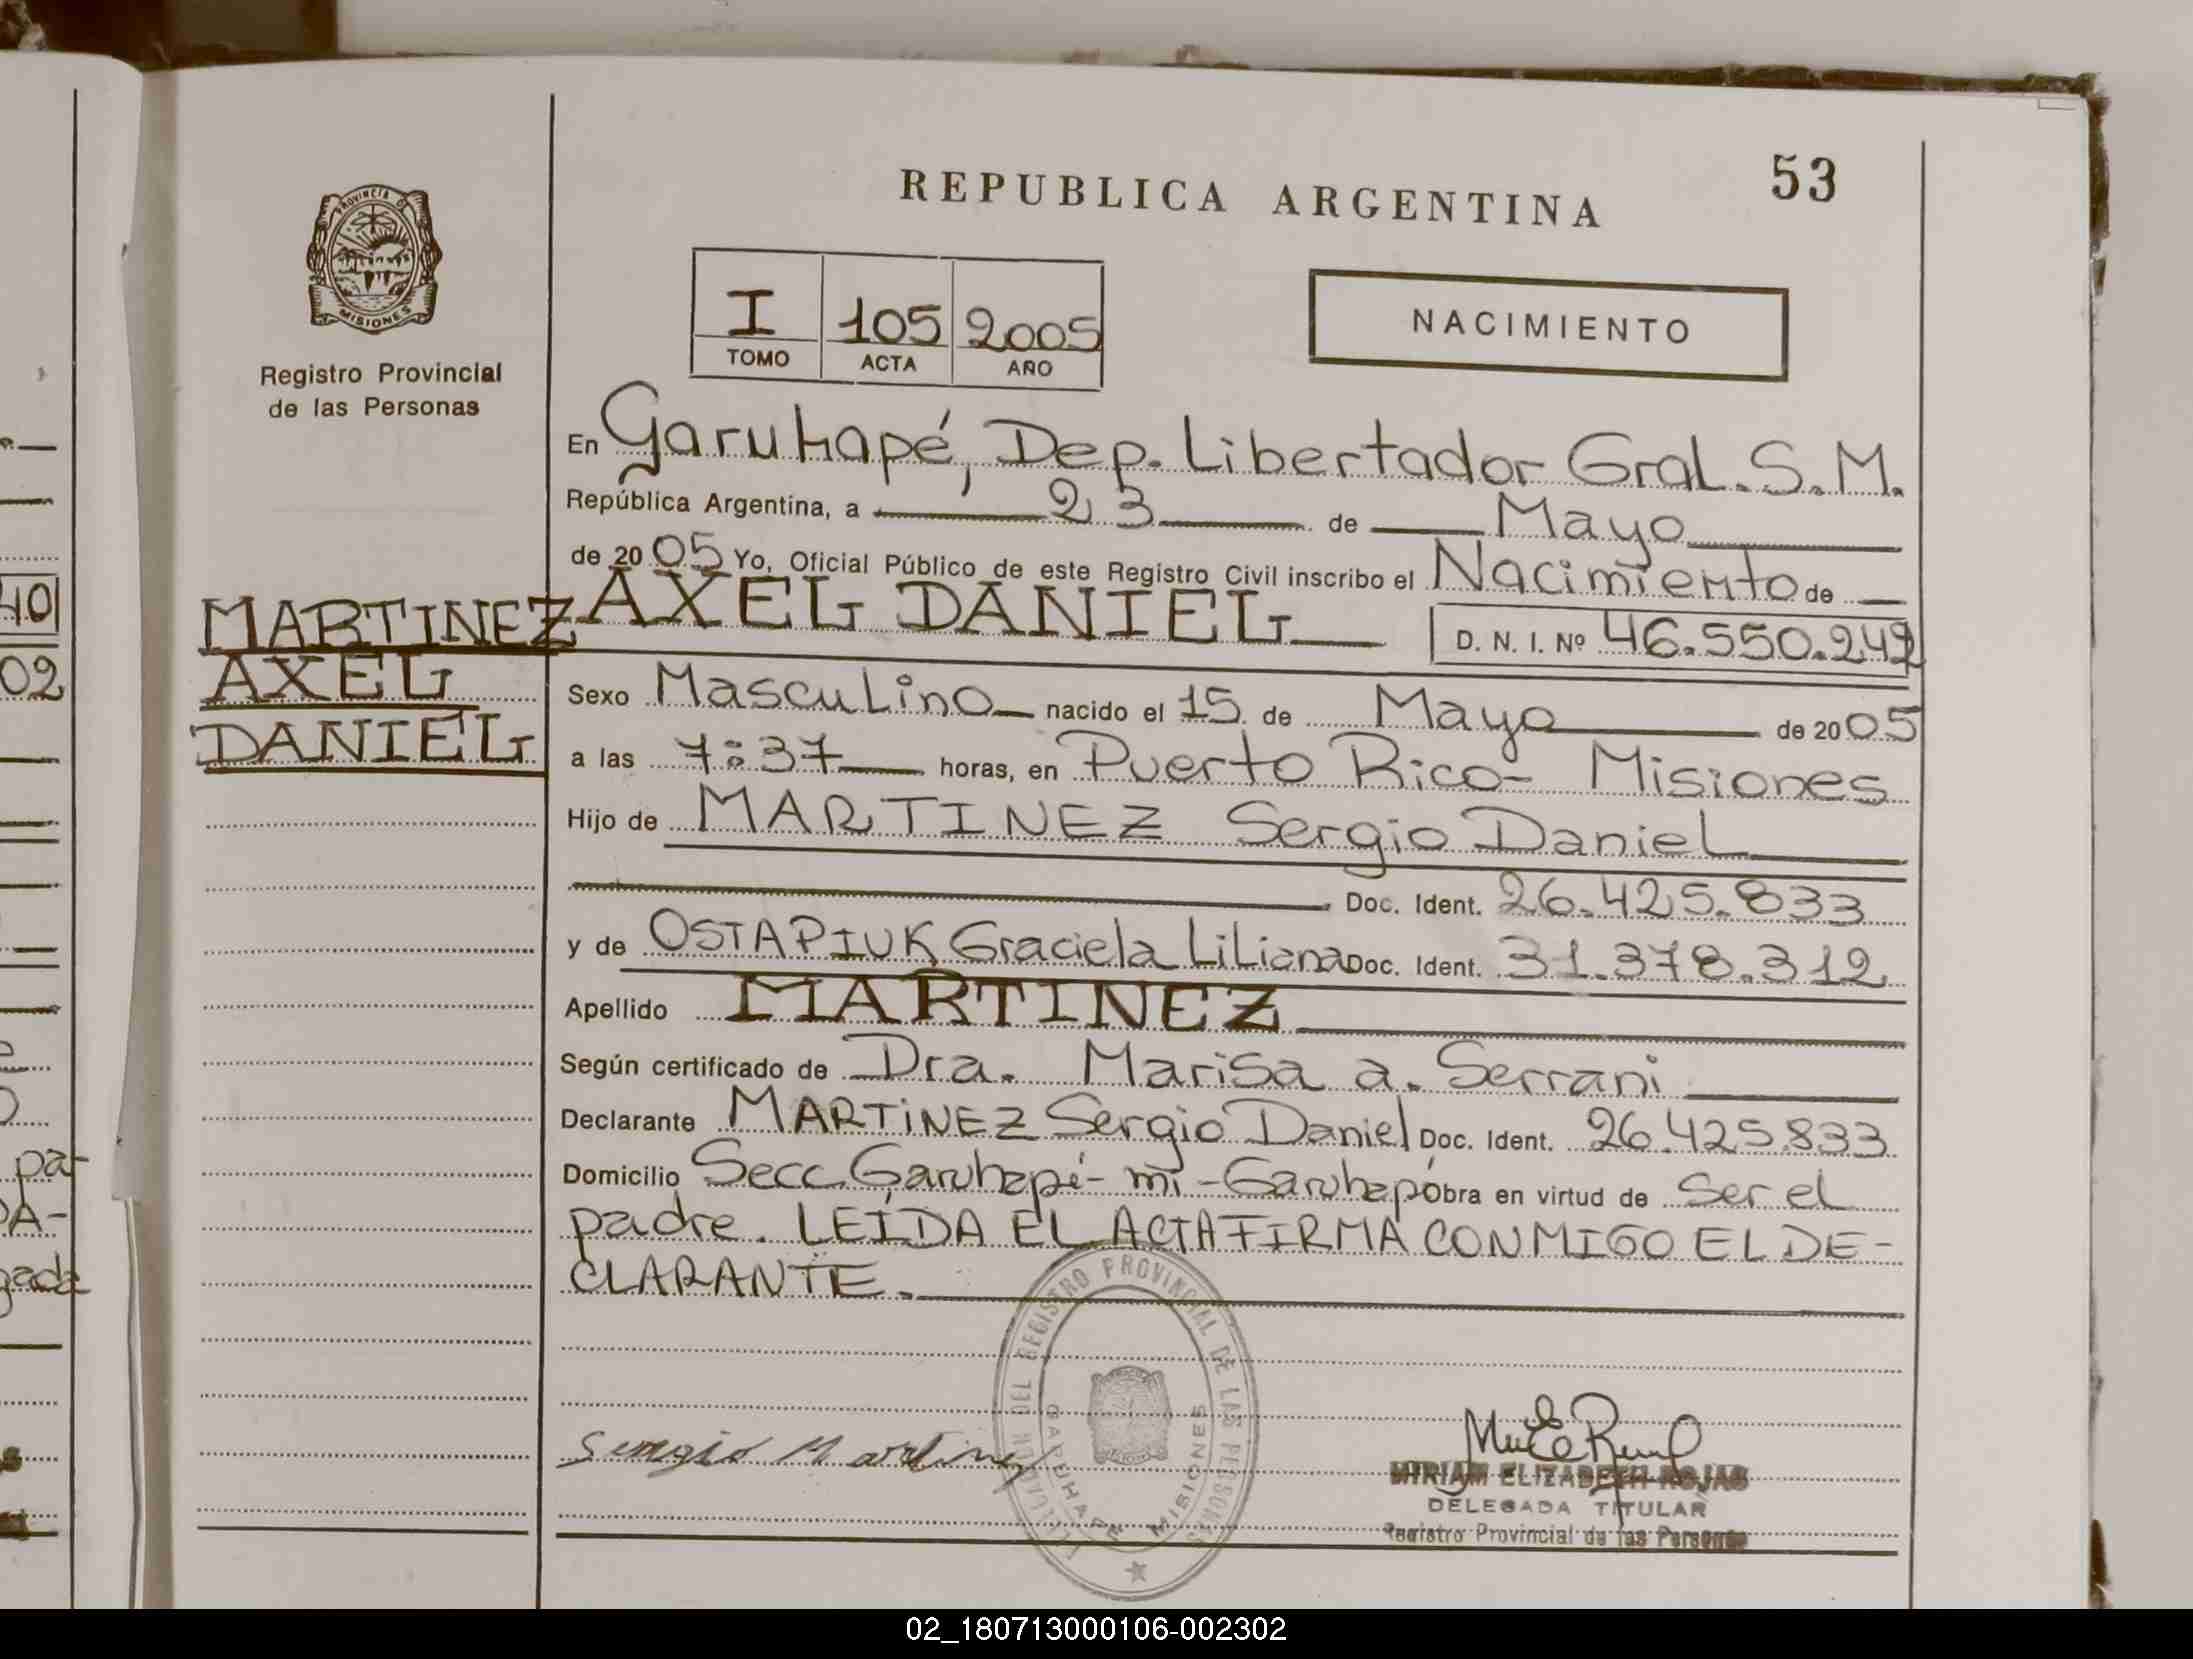 53
REPUBLICA ARGENTINA
PROVINCIA DE
MISIONES
Registro Provincial
de las Personas
I 105 2005
TOMO ACTA AÑO
NACIMIENTO
En Garuhapé, Dep. Libertador Gral. S. M.
República Argentina, a 23 de Mayo
de 2005 Yo, Oficial Público de este Registro Civil inscribo el Nacimiento de
MARTINEZ AXEL DANIEL D. N. I. Nº 46.550.242
AXEL
DANIEL
Sexo Masculino nacido el 15 de Mayo de 2005
a las 7:37 horas, en Puerto Rico- Misiones
Hijo de MARTINEZ Sergio Daniel
Doc. Ident. 26.425.833
y de OSTAPIUK Graciela Liliana Doc. Ident. 31.378.312
Apellido MARTINEZ
Según certificado de Dra. Marisa a. Serrani
Declarante MARTINEZ Sergio Daniel Doc. Ident. 26.425.833
Domicilio Secc. Garuhapé-mi-Garuhapé obra en virtud de Ser el
padre. LEIDA EL ACTA FIRMA CONMIGO EL DE-
CLARANTE.
DEL REGISTRO PROVINCIAL DE LAS PERSONAS
GARUHAPE MISIONES
Sergio Martinez
MIRIAM ELIZABETH ROJAS
DELEGADA TITULAR
Registro Provincial de las Personas
40
02
pa-
DA-
gada
02_180713000106-002302